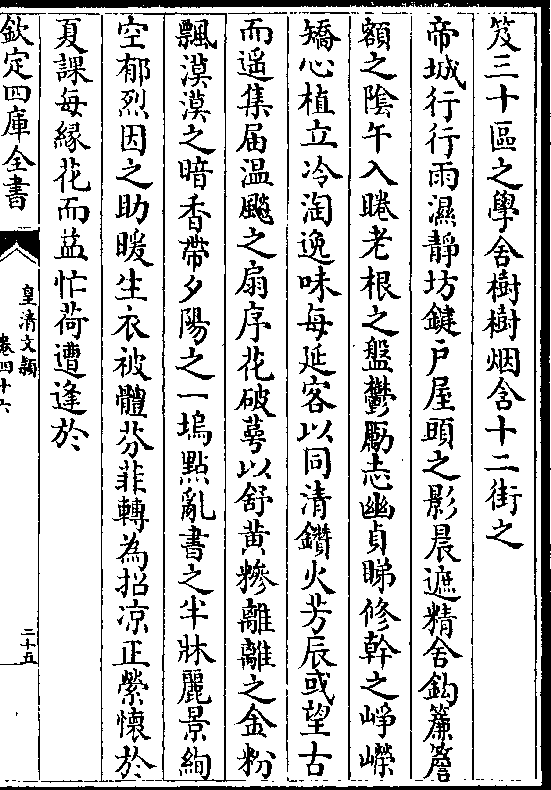 笈三十區之學舍樹樹烟含十二街之
帝城行行雨濕靜坊鍵戶屋頭之影晨遮精舍鈎簾簷
額之陰午入睠老根之盤鬱勵志幽貞睇修幹之崢嶸
矯心植立冷淘逸味每延客以同清鑽火芳辰或望古
而遥集届温颸之扇序花破萼以舒黄糝離離之金粉
飄漠漠之暗香帶夕陽之一塢點亂書之半牀麗景絢
空郁烈因之助暖生衣被體芬菲轉為招凉正縈懷於
夏課每緣花而益忙荷遭逢於
欽定四庫全書
皇清文穎
卷四十六
二十五